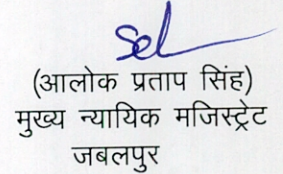 Sd
(आलोक प्रताप सिंह)
मुख्य न्यायिक मजिस्ट्रेट
जबलपुर